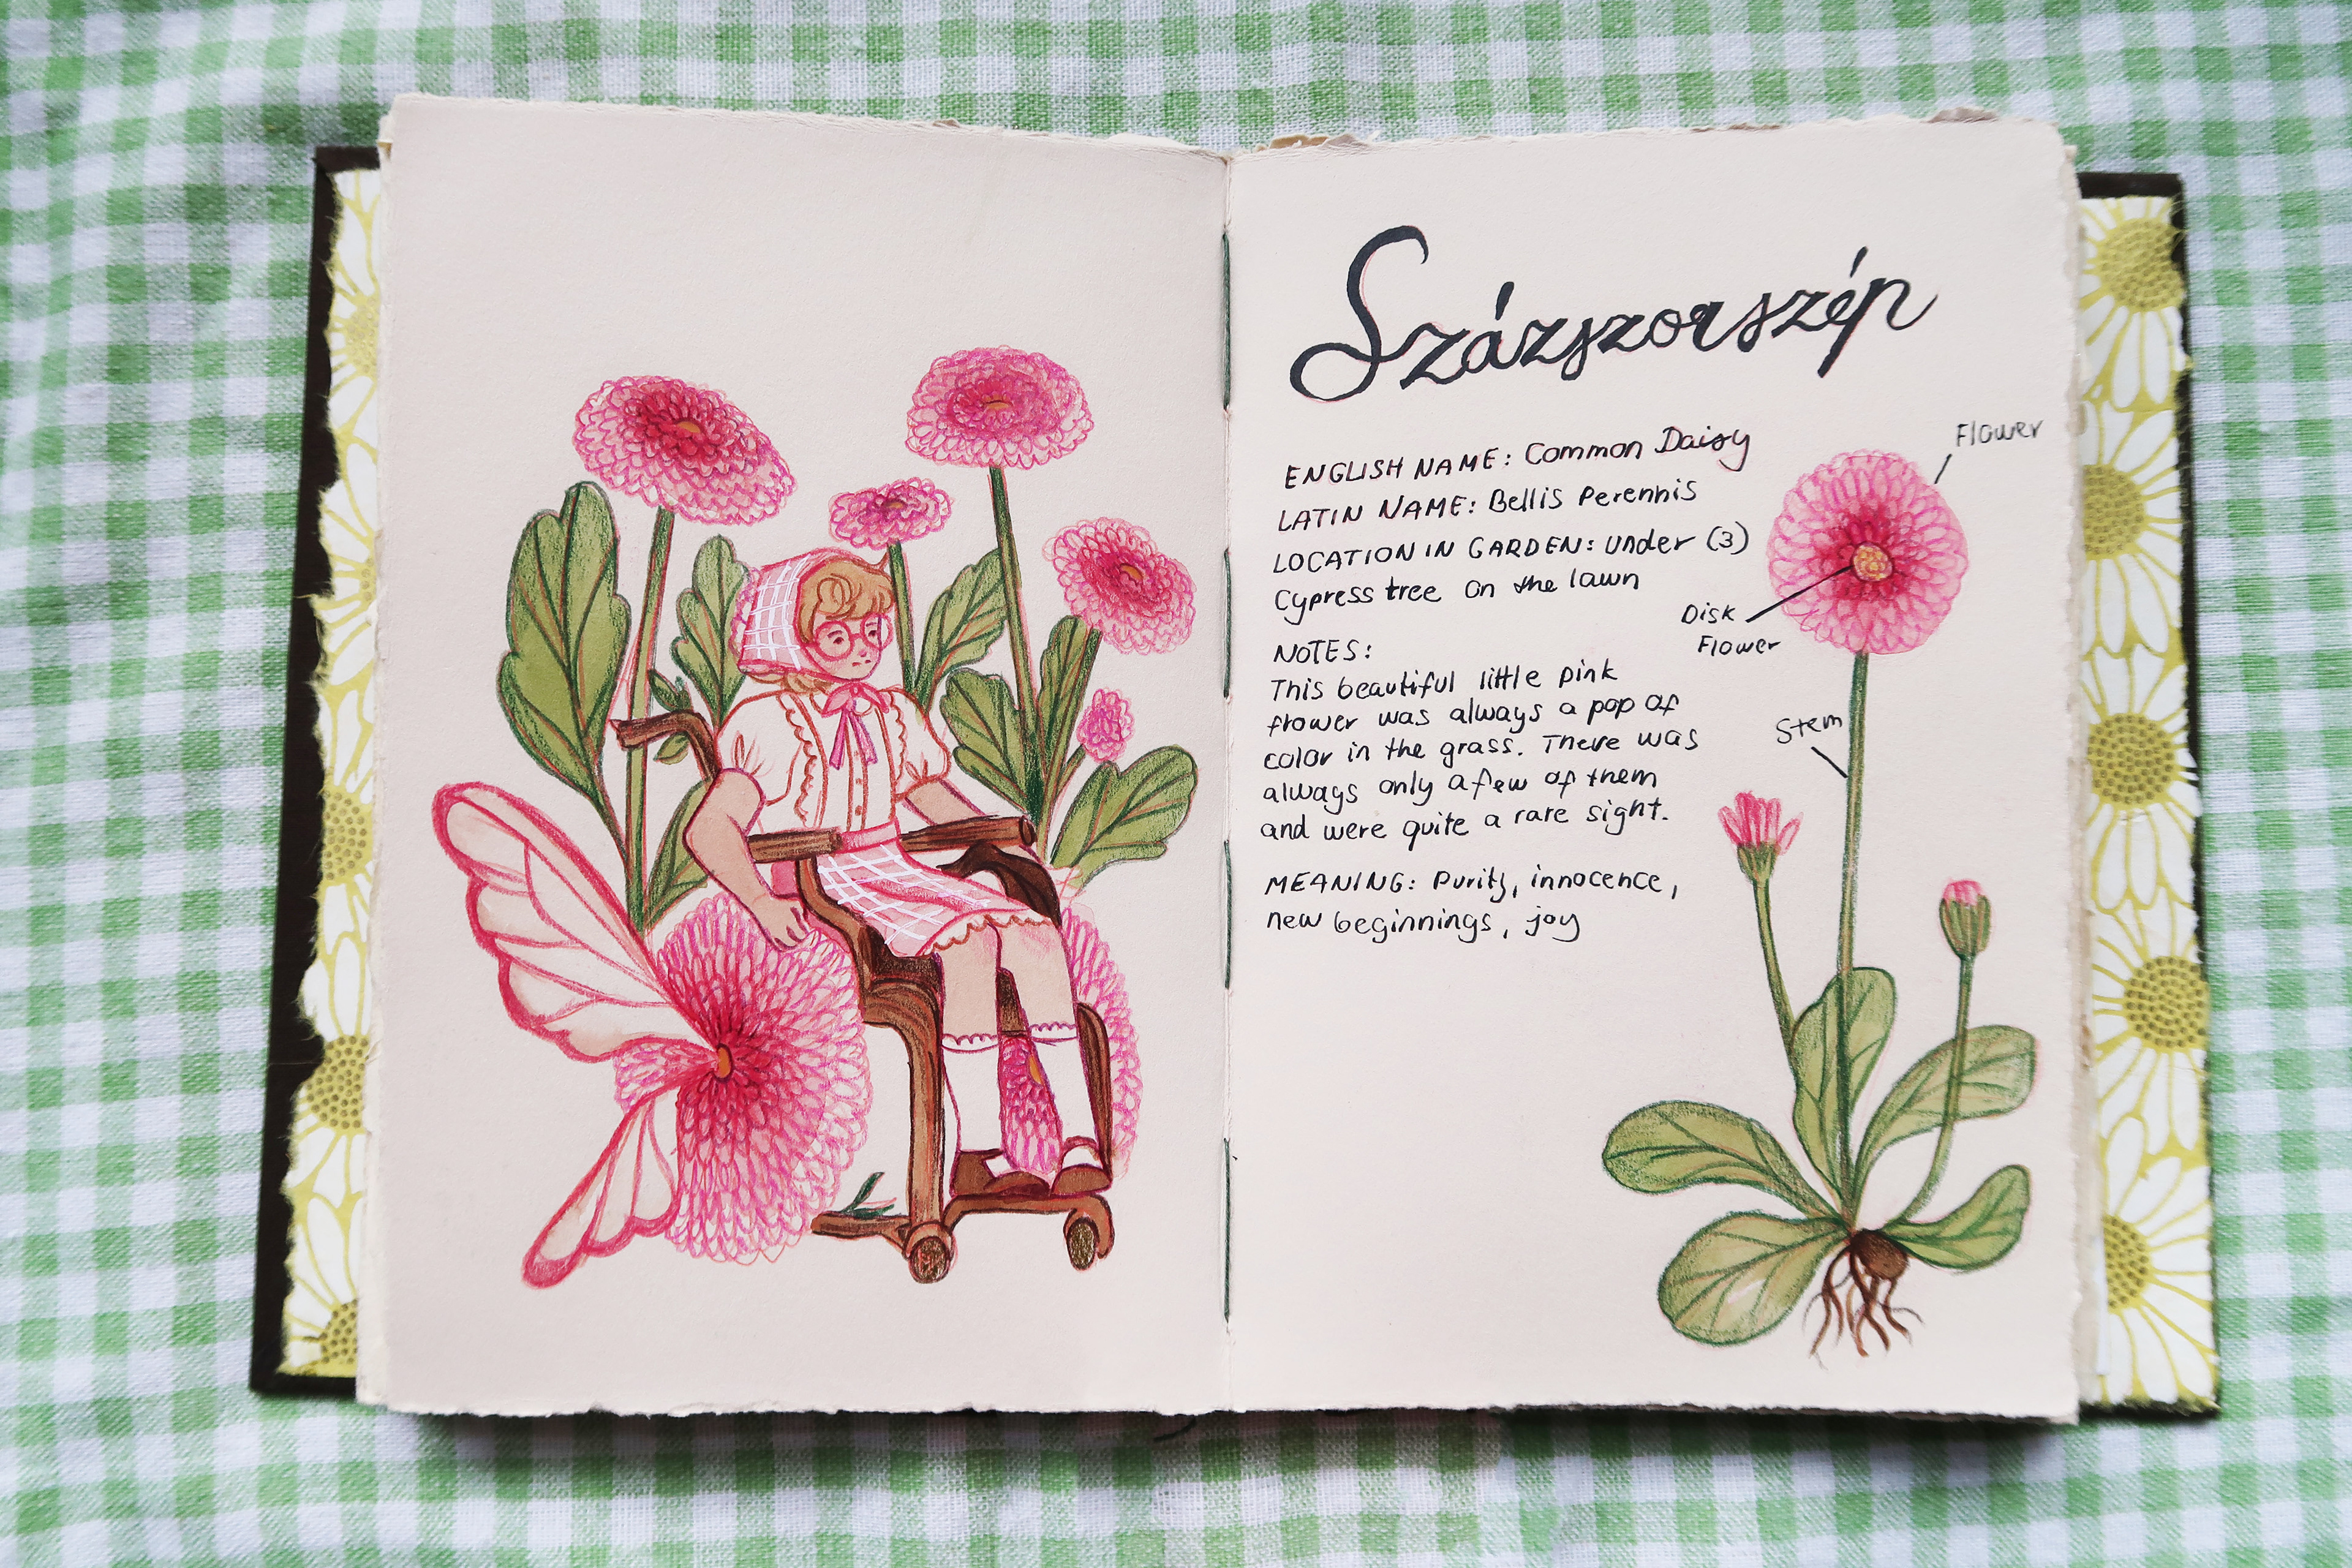 Százszorszép
ENGLISH NAME: Common Daisy
LATIN NAME: Bellis Perennis
LOCATION IN GARDEN: under (3)
Cypress tree on the lawn
NOTES:
This beautiful little pink
flower was always a pop of
color in the grass. There was
always only a few of them
and were quite a rare sight.
MEANING: Purity, innocence,
new beginnings, joy
Flower
Disk
Flower
Stem